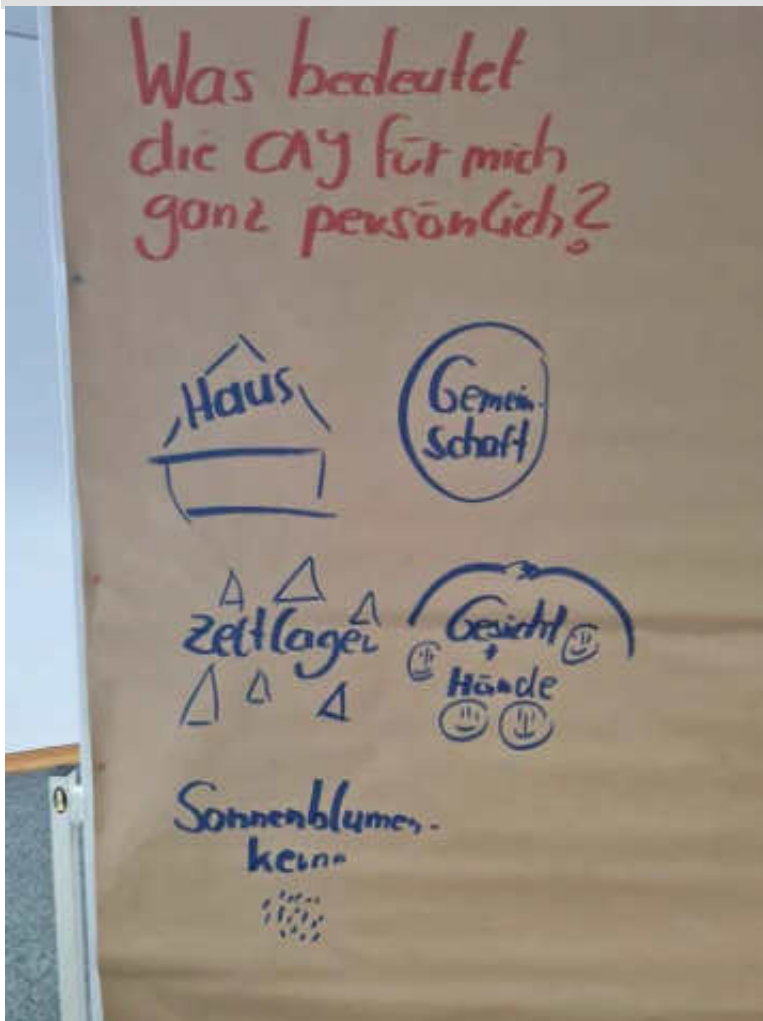 Was bedeutet
die CAJ für mich
ganz persönlich?
Haus
Gemein-
schaft
Zeltlager
Gesicht
+
Hände
Sonnenblumen-
kern